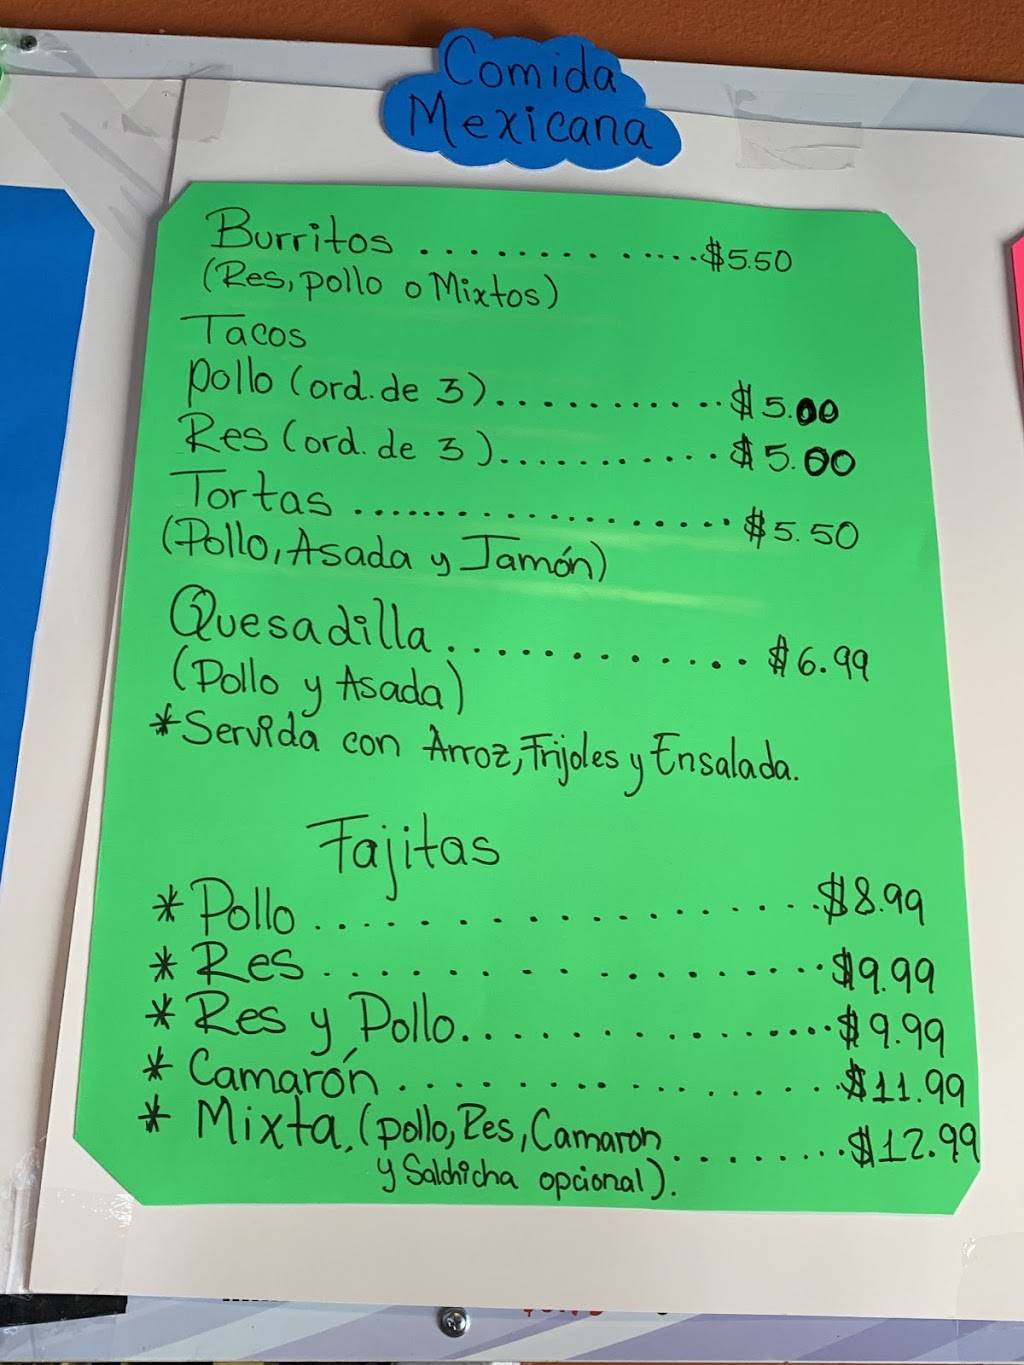 Comida
Mexicana
Burritos ................ $5.50
(Res, pollo o Mixtos)
Tacos
Pollo (ord. de 3) ............ $5.00
Res (ord. de 3) ............ $5.00
Tortas ..................... $5.50
(Pollo, Asada y Jamón)
Quesadilla ............. $6.99
(Pollo y Asada)
*Servida con Arroz, Frijoles y Ensalada.
Fajitas
* Pollo .................. $8.99
* Res .................. $9.99
* Res y Pollo ................ $9.99
* Camarón .................. $11.99
* Mixta, (pollo, Res, Camaron .......... $12.99
y Salchicha opcional).